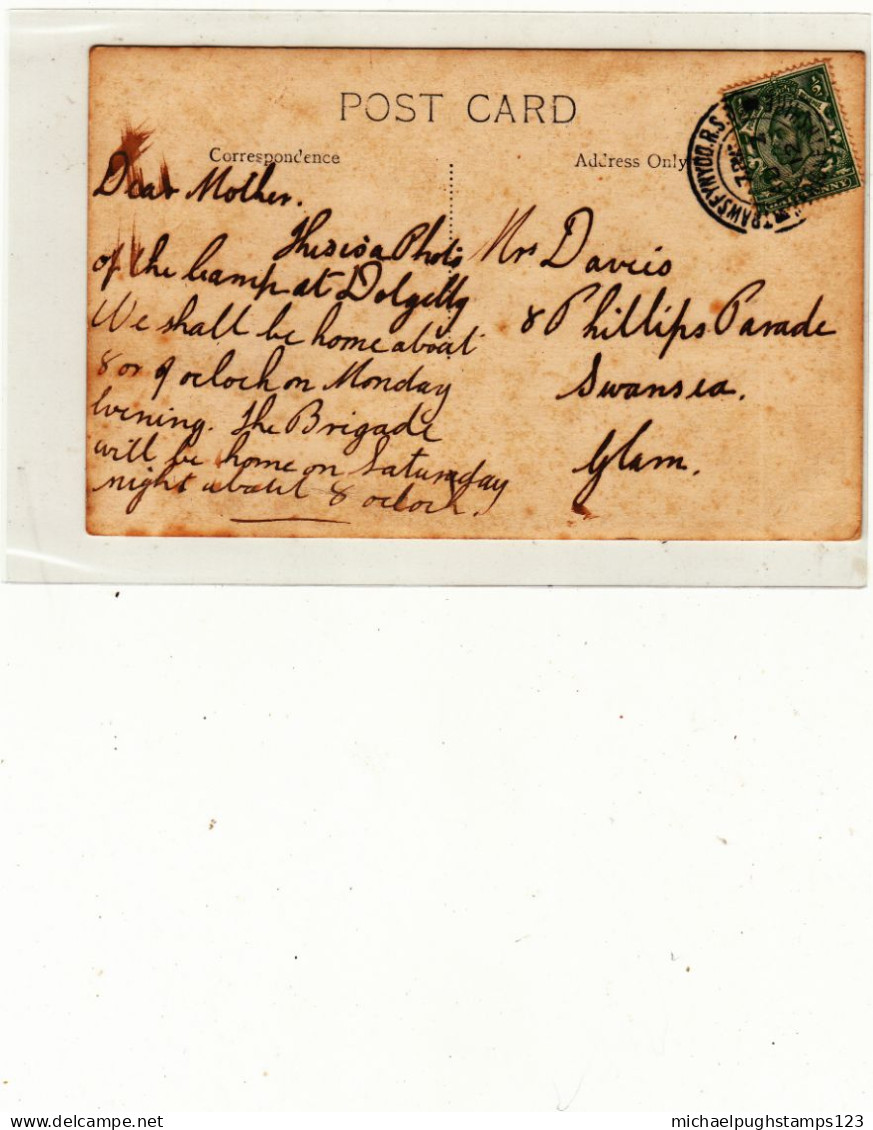 POST CARD
Correspondence
Address Only
Dear Mother.
This is a Photo
of the Camp at Dolgelly
We shall be home about
8 or 9 oclock on Monday
Evening. The Brigade
will be home on Saturday
night about 8 oclock.
Mrs Davies
8 Phillips Parade
Swansea.
Glam.
TRAWSFYNYDD.R.S.O
michaelpughstamps123